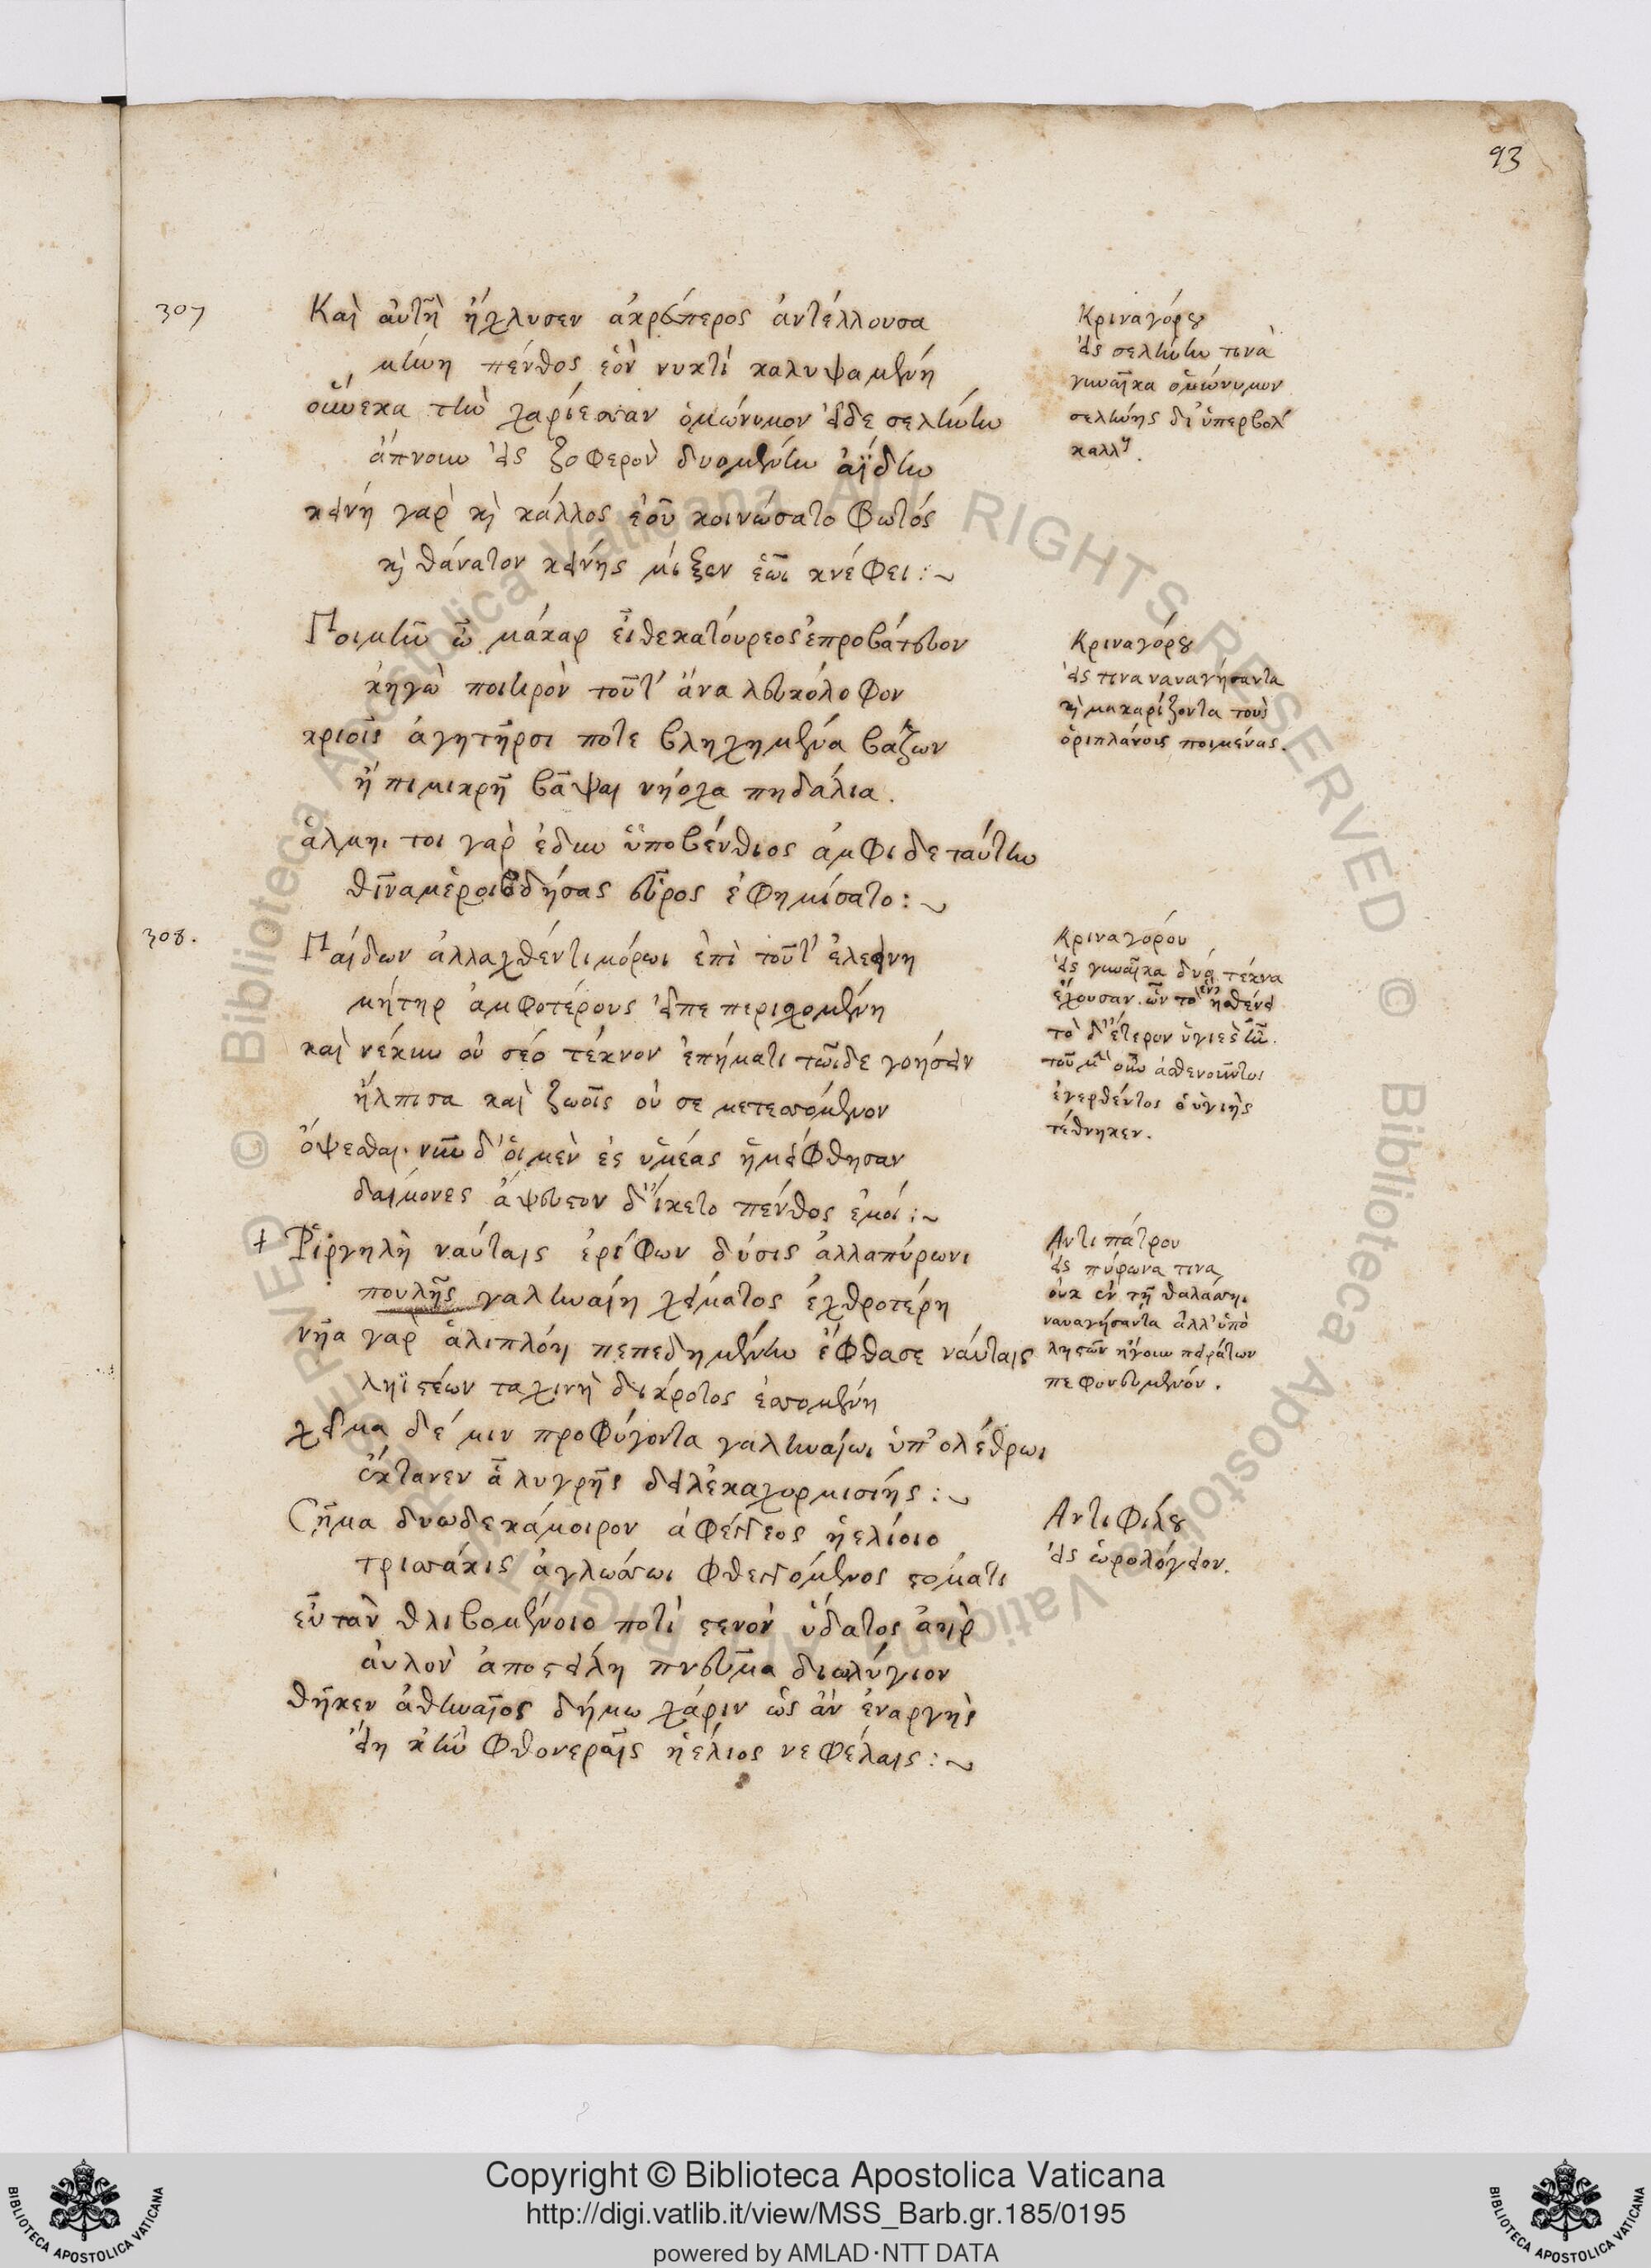 93
307
Καὶ αὐτὴ ἤχλυσεν ἀκρέσπερος ἀντέλλουσα
μήνη πένθος ἑὸν νυκτὶ καλυψαμένη
οὕνεκα τὴν χαρίεσσαν ὁμώνυμον εἶδε σελήνην
ἄπνουν εἰς ζοφερὸν δυομένην ἀΐδην
κείνη γὰρ καὶ κάλλος ἑοῦ κοινώσατο φωτός
καὶ θάνατον κείνης μίξεν ἑῶι κνέφει:~
Κριναγόρου
εἰς σελήνην τινὰ
γυναῖκα ὁμώνυμον
σελήνης δι' ὑπερβολ
καλλ
Ποιμὴν ὦ μάκαρ εἴθε κατούρεος ἐπροβάτευον
κηγὼ ποιηρὸν τοῦτ' ἄνα λευκόλοφον
κριοῖς ἁγητῆρσι ποτε βληχημένα βάζων
ἢ πικρῆ βάψαι νήοχα πηδάλια.
ἅλμηι τοι γὰρ ἔδυν ὑποβένθιος ἀμφὶ δε ταύτην
θῖνα με ῥοιβδήσας εὖρος ἐφημίσατο:~
Κριναγόρου
εἰς τινα ναυαγήσαντα
καὶ μακαρίζοντα τοὺς
ὀριπλάνους ποιμένας.
308.
Παίδων ἀλλαχθέντι μόρωι ἐπὶ τοῦτ' ἐλεεινη
μήτηρ ἀμφοτέρους εἶπε περισχομένη
καὶ νέκυν οὐ σέο τέκνον ἐπήματι τῶιδε γοήσειν
ἤλπισα καὶ ζωοῖς οὐ σε μετεσσόμενον
ὄψεσθαι. νῦν δ' οἱ μὲν ἐς ὑμέας ἡμείφθησαν
δαίμονες ἄψευστον δ' ἵκετο πένθος ἐμοί:~
Κριναγόρου
εἰς γυναῖκα δυὸ τέκνα
ἔχουσαν. ὧν τὸ ἓν ἠσθένει
τὸ δ' ἕτερον ὑγιὲς ἦν.
τοῦ μὲν οὖν ἀσθενοῦντος
ἐγερθέντος ὁ ὑγιὴς
τέθνηκεν.
+ Ῥιγηλὴ ναύταις ἐρίφων δύσις ἀλλαπύρωνι
πουλῆς γαληναίη χείματος ἐχθροτέρη
νῆα γὰρ ἁλιπλόη πεπεδημένην ἔφθασε ναύταις
ληϊστέων ταχινὴ δίκροτος ἐσσομένη
χεῖμα δέ μιν προφύγοντα γαληναίωι ὑπ' ολέθρωι
ἔκτανεν ἆ λυγρῆς δειλὲ καχορμισίης:~
Αντιπάτρου
εἰς πύρωνα τινα
οὐκ ἐν τῆ θαλάσσηι
ναυαγήσαντα ἀλλ' ὑπὸ
ληστῶν ἤγουν πειράτων
πεφονευμένον.
Σῆμα δυωδεκάμοιρον ἀφεγγέος ἠελίοιο
τρισσάκις ἀγλώσσωι φθεγγόμενος στόματι
εὖτ' ἂν θλιβομένοιο ποτὶ στενὸν ὕδατος ἀὴρ
αὐλὸν ἀποστείλη πνεῦμα διωλύγιον
θῆκεν ἀθηναῖος δήμω χάριν ὡς ἂν ἐναργὴς
εἴη κἢν φθονεραῖς ἠέλιος νεφέλαις:~
Αντιφίλου
εἰς ὡρολόγειον.
Copyright © Biblioteca Apostolica Vaticana
http://digi.vatlib.it/view/MSS_Barb.gr.185/0195
powered by AMLAD·NTT DATA
BIBLIOTECA APOSTOLICA VATICANA
BIBLIOTECA APOSTOLICA VATICANA
© Biblioteca Apostolica Vaticana ALL RIGHTS RESERVED